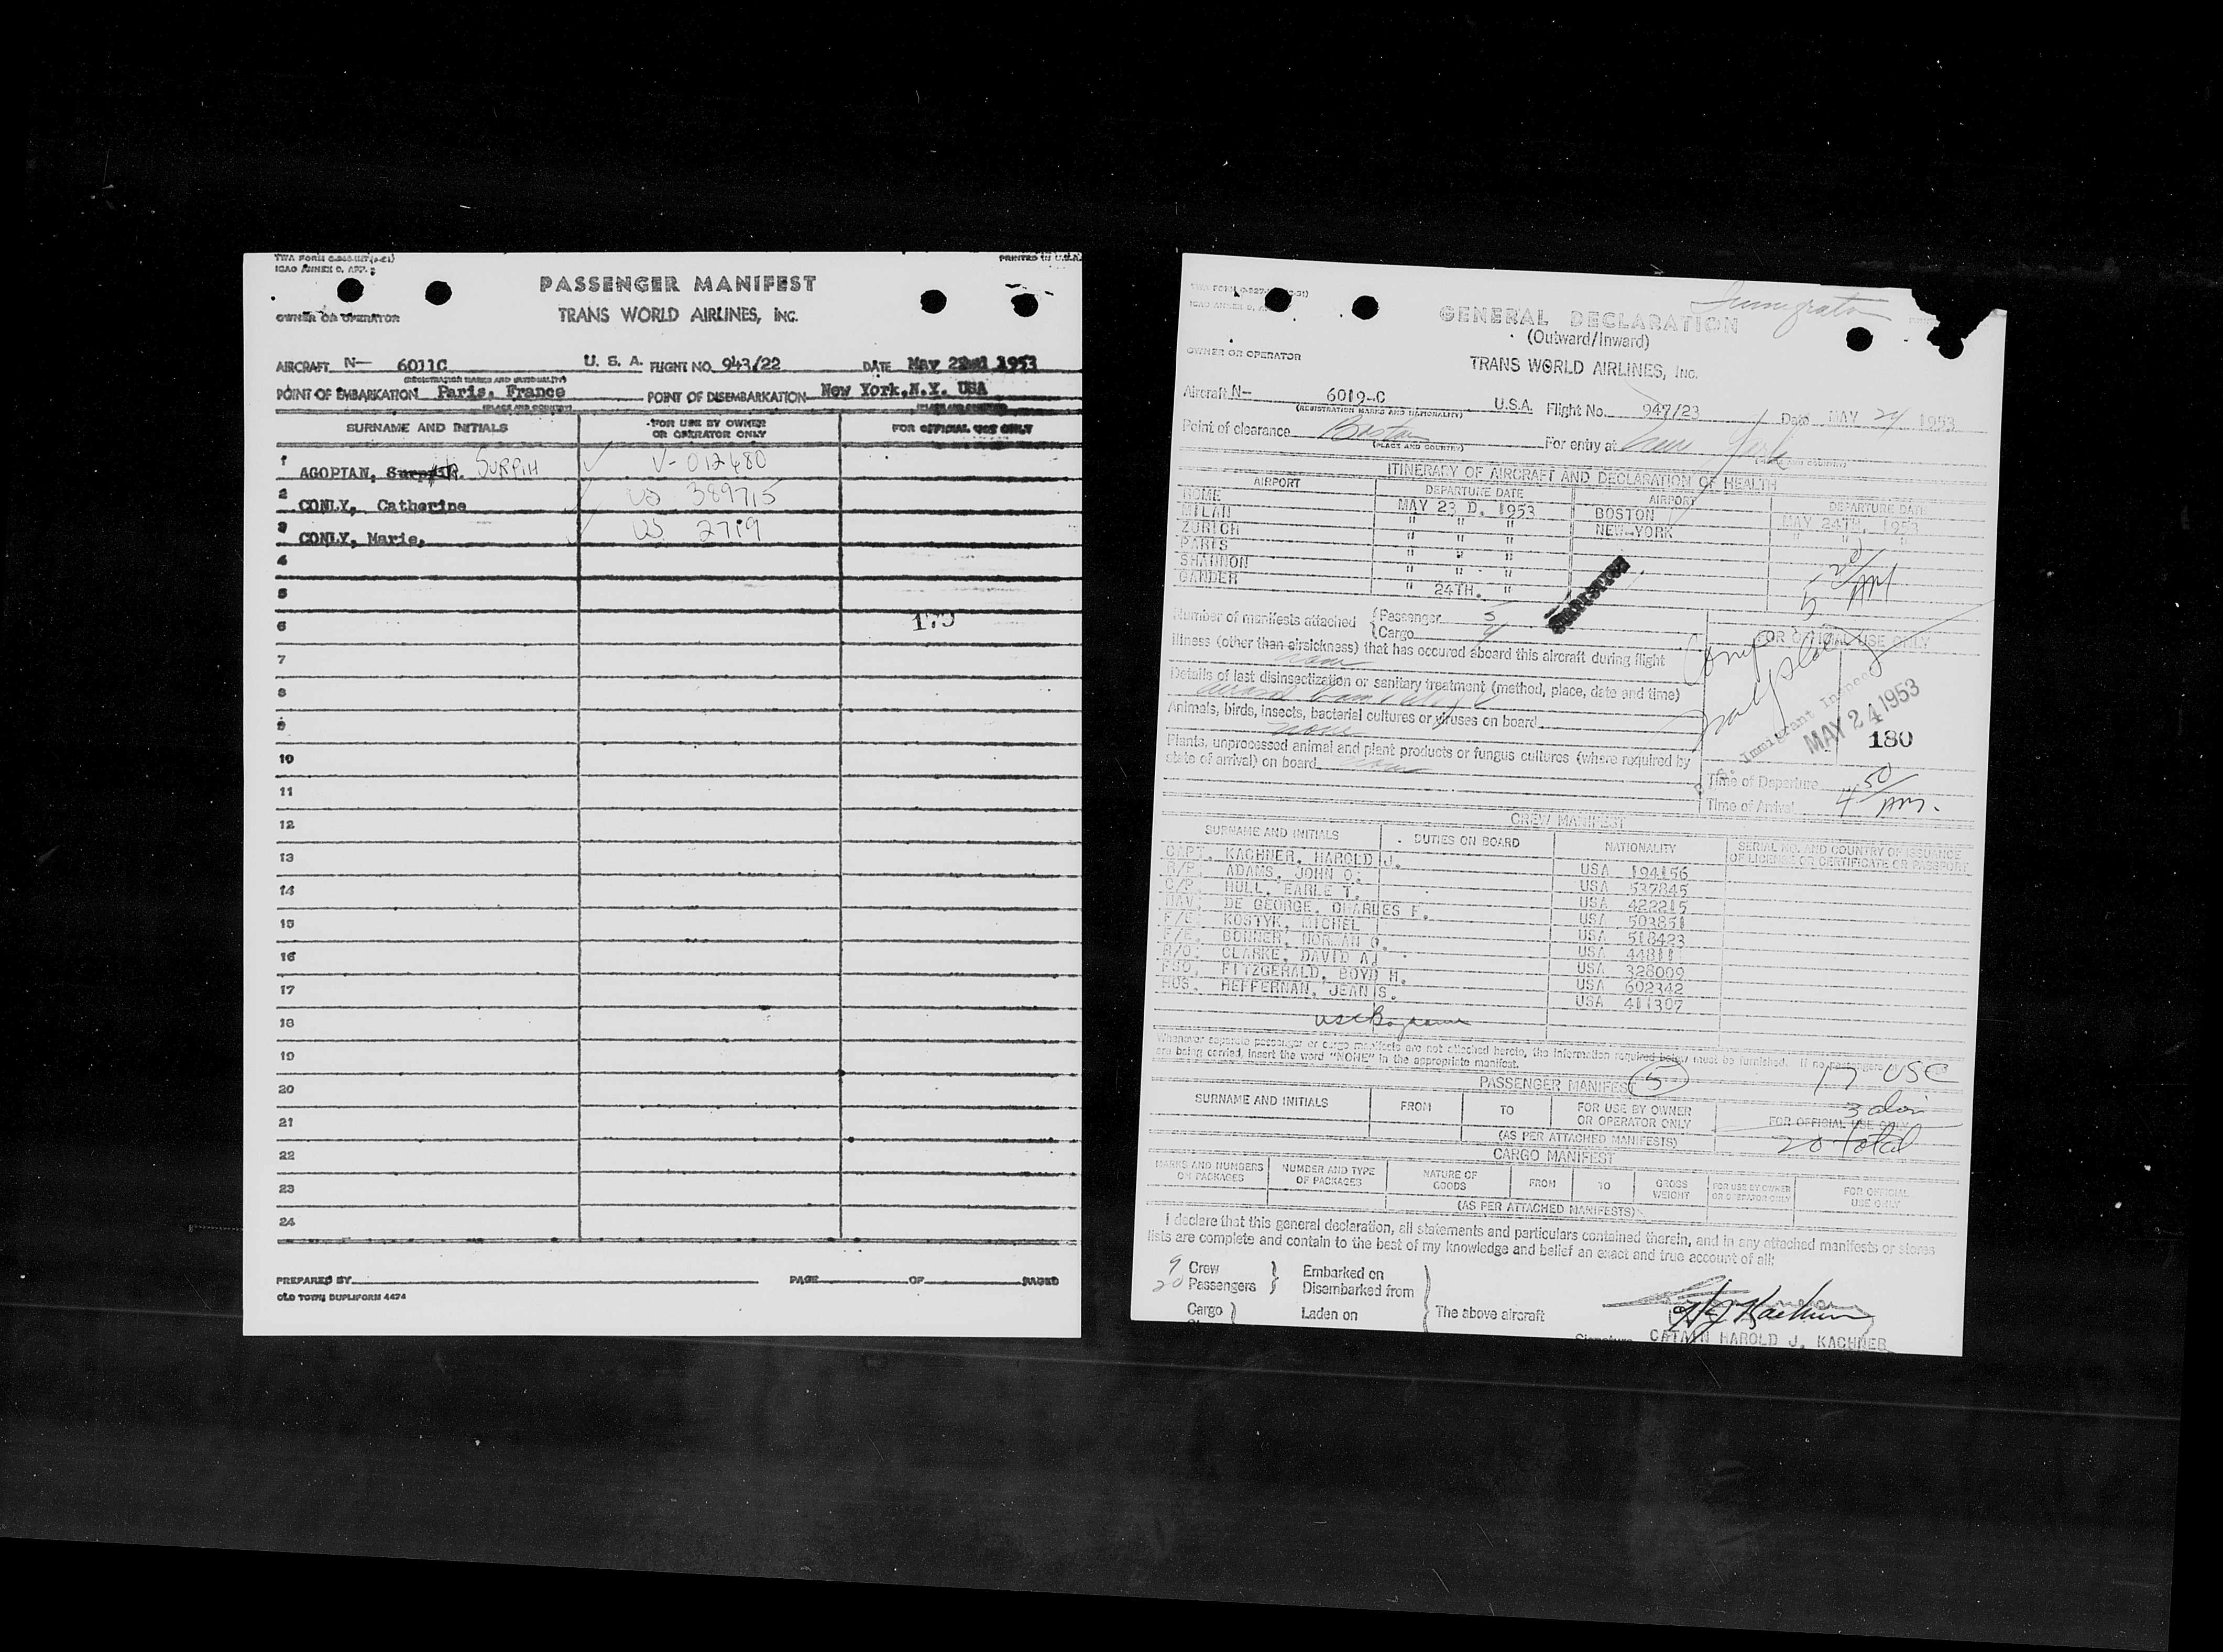 ICAO ANNEX 9, APP. 2
PRINTED IN U.S.A.
PASSENGER MANIFEST
OWNER OR OPERATOR
TRANS WORLD AIRLINES, INC.
AIRCRAFT N— 6011C U. S. A. FLIGHT NO. 943/22 DATE May 22nd 1953
(REGISTRATION MARKS AND NATIONALITY)
POINT OF EMBARKATION Paris, France POINT OF DISEMBARKATION New York,N.Y. USA
(PLACE AND COUNTRY)
SURNAME AND INITIALS FOR USE BY OWNER OR OPERATOR ONLY FOR OFFICIAL USE ONLY
1 AGOPIAN, SURPIH V-012480
2 CONLY, Catherine US 389715
3 CONLY, Marie, US 2719
4
5
6 179
7
8
9
10
11
12
13
14
15
16
17
18
19
20
21
22
23
24
PREPARED BY PAGE OF PAGES
OLD TOWN DUPLIFORM 4474
GENERAL DECLARATION
(Outward/Inward)
OWNER OR OPERATOR
TRANS WORLD AIRLINES, INC.
Aircraft N— 6019-C U.S.A. Flight No. 947/23 Date MAY 24 1953
(REGISTRATION MARKS AND NATIONALITY)
Point of clearance Boston For entry at New York
(PLACE AND COUNTRY) (PLACE AND COUNTRY)
ITINERARY OF AIRCRAFT AND DECLARATION OF HEALTH
AIRPORT DEPARTURE DATE AIRPORT DEPARTURE DATE
ROME MAY 23 D. 1953 BOSTON MAY 24TH. 1953
MILAN " " " NEW-YORK " " "
ZURICH " " "
PARIS " " "
SHANNON " " "
GANDER " 24TH. "
5 20/AM
Number of manifests attached { Passenger 5
{ Cargo 4
FOR OFFICIAL USE ONLY
Illness (other than airsickness) that has occured aboard this aircraft during flight
none
Details of last disinsectization or sanitary treatment (method, place, date and time)
Animals, birds, insects, bacterial cultures or viruses on board
none
Immigrant Inspec
MAY 24 1953
180
Plants, unprocessed animal and plant products or fungus cultures (where required by
state of arrival) on board none
Time of Departure
Time of Arrival 4 50/AM.
CREW MANIFEST
SURNAME AND INITIALS DUTIES ON BOARD NATIONALITY SERIAL NO. AND COUNTRY OF ISSUANCE OF LICENSE OR CERTIFICATE OR PASSPORT
CAPT. KACHNER, HAROLD J. USA 194156
R/P. ADAMS, JOHN Q. USA 537845
C/P. HULL, EARLE T. USA 422215
NAV. DE GEORGE, CHARLES F. USA 503851
F/E. KOSTYK, MICHEL USA 518423
F/E. BONNER, NORMAN O. USA 448111
R/O. CLARKE, DAVID A. USA 328009
PSO. FITZGERALD, BOYD H. USA 602342
HOS. HEFFERNAN, JEAN S. USA 411397
Whenever separate passenger or cargo manifests are not attached hereto, the information required below must be furnished. If no passengers
are being carried, insert the word "NONE" in the appropriate manifest.
PASSENGER MANIFEST 5 17 USC
SURNAME AND INITIALS FROM TO FOR USE BY OWNER OR OPERATOR ONLY FOR OFFICIAL USE ONLY
3
20 total
(AS PER ATTACHED MANIFESTS)
CARGO MANIFEST
MARKS AND NUMBERS ON PACKAGES NUMBER AND TYPE OF PACKAGES NATURE OF GOODS FROM TO GROSS WEIGHT FOR USE BY OWNER OR OPERATOR ONLY FOR OFFICIAL USE ONLY
(AS PER ATTACHED MANIFESTS)
I declare that this general declaration, all statements and particulars contained therein, and in any attached manifests or stores
lists are complete and contain to the best of my knowledge and belief an exact and true account of all:
9 Crew } Embarked on
20 Passengers } Disembarked from
Cargo } Laden on The above aircraft
Signature CATAIN HAROLD J. KACHNER